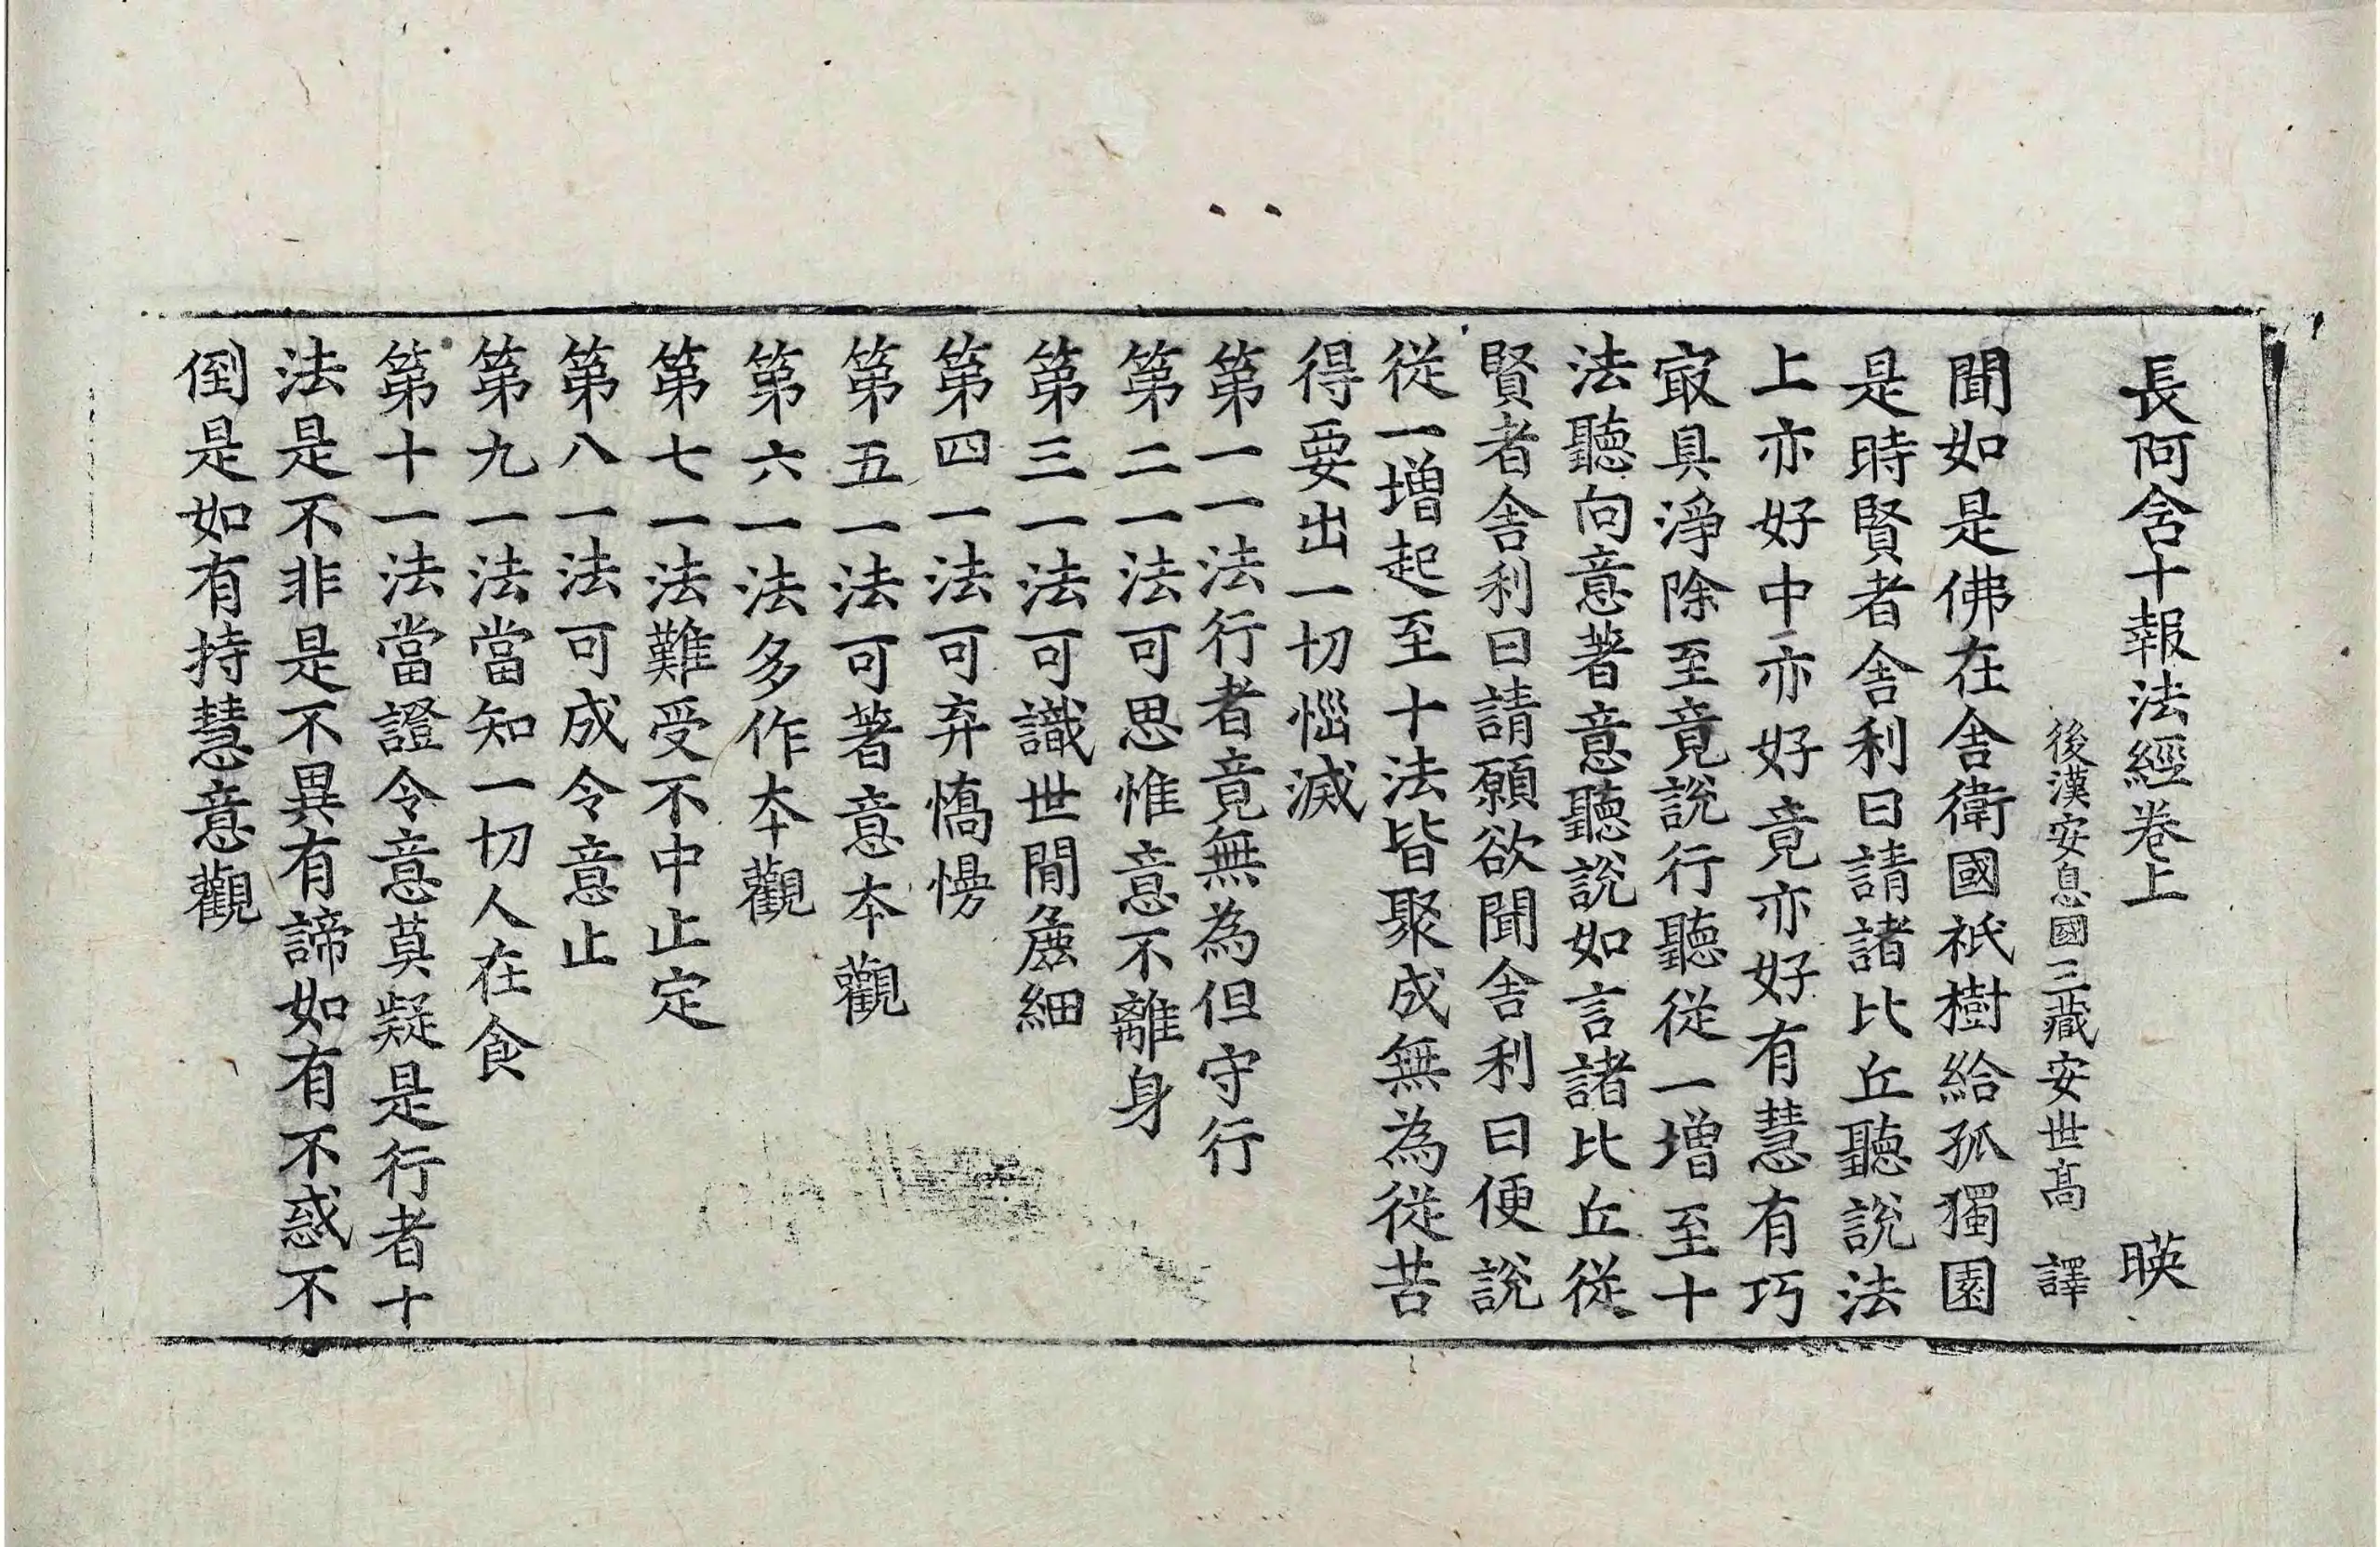 長阿含十報法經卷上 暎
後漢安息國三藏安世高 譯
聞如是佛在舍衛國祇樹給孤獨園
是時賢者舍利曰請諸比丘聽說法
上亦好中亦好竟亦好有慧有巧
㝡具淨除至竟說行聽從一增至十
法聽向意著意聽說如言諸比丘從
賢者舍利曰請願欲聞舍利曰便說
從一增起至十法皆聚成無為從苦
得要出一切惱滅
第一一法行者竟無為但守行
第二一法可思惟意不離身
第三一法可識世間麁細
第四一法可弃憍慢
第五一法可著意夲觀
第六一法多作夲觀
第七一法難受不中止定
第八一法可成令意止
第九一法當知一切人在食
第十一法當證令意莫疑是行者十
法是不非是不異有諦如有不惑不
倒是如有持慧意觀